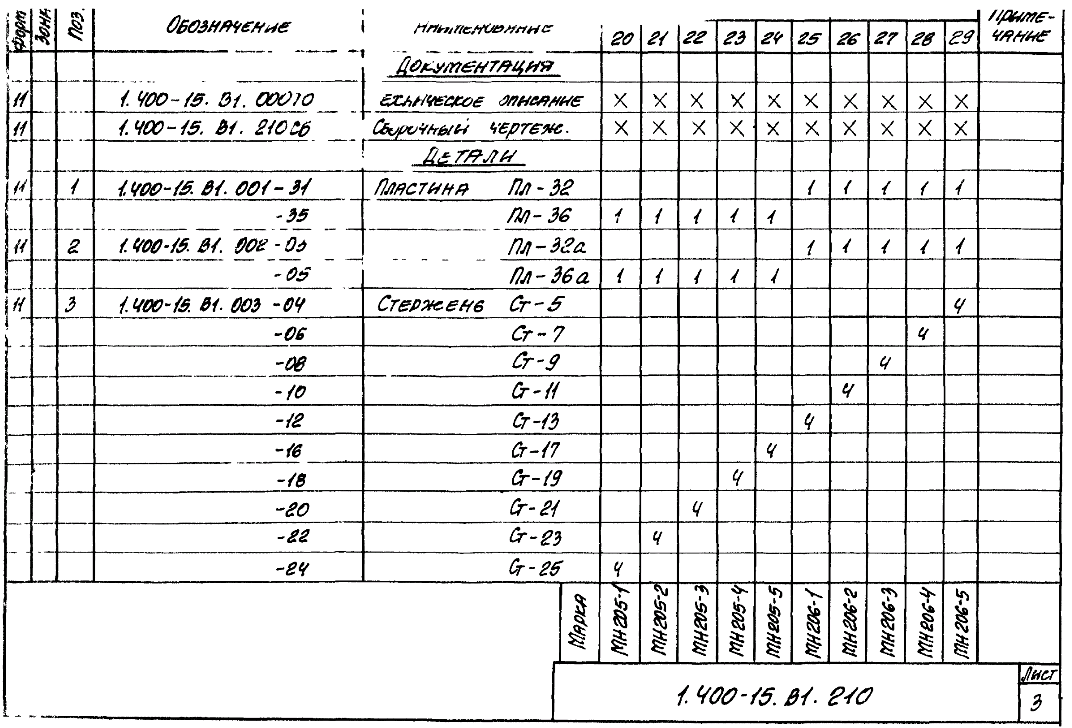 Форм Зона Поз. Обозначение Наименование 20 21 22 23 24 25 26 27 28 29 Приме-
чание
Документация
11 1.400-15. В1. 00070 ехническое описание X X X X X X X X X X
11 1.400-15. В1. 210СБ Сборочный чертеж. X X X X X X X X X X
Детали
11 1 1.400-15. В1. 001-31 Пластина Пл-32 1 1 1 1 1
-35 Пл-36 1 1 1 1 1
11 2 1.400-15. В1. 002 Пл-32а 1 1 1 1 1
-05 Пл-36а 1 1 1 1 1
11 3 1.400-15. В1. 003 -04 Стержень Ст-5 4
-06 Ст-7 4
-08 Ст-9 4
-10 Ст-11 4
-12 Ст-13 4
-16 Ст-17 4
-18 Ст-19 4
-20 Ст-21 4
-22 Ст-23 4
-24 Ст-25 4
Марка МН205-1 МН205-2 МН205-3 МН205-4 МН205-5 МН206-1 МН206-2 МН206-3 МН206-4 МН206-5
1.400-15. В1. 210
Лист
3